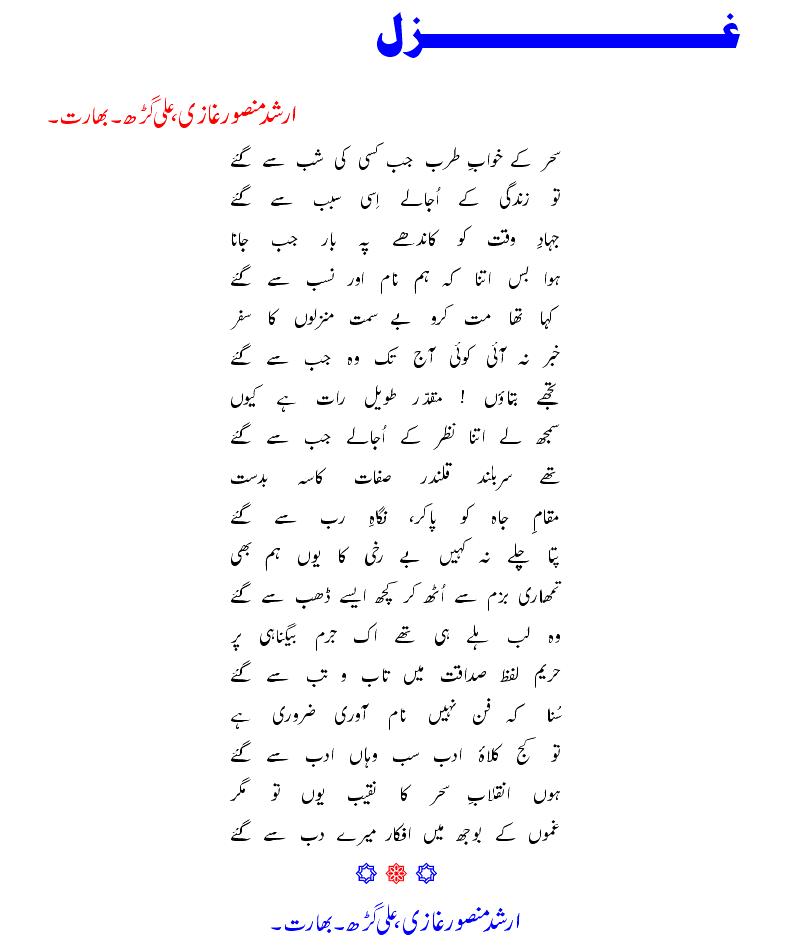 غزل
ارشد منصور غازی، علی گڑھ۔ بھارت۔
سحر کے خوابِ طرب جب کسی کی شب سے گئے
تو زندگی کے اُجالے اِسی سبب سے گئے
جہادِ وقت کو کاندھے پہ بار جب جانا
ہوا بس اتنا کہ ہم نام اور نسب سے گئے
کہا تھا مت کرو بے سمت منزلوں کا سفر
خبر نہ آئی کوئی آج تک وہ جب سے گئے
تجھے بتاؤں ! مقدّر طویل رات ہے کیوں
سمجھ لے اتنا نظر کے اُجالے جب سے گئے
تھے سربلند قلندر صفات کاسہ بدست
مقامِ جاہ کو پاکر، نگاہِ رب سے گئے
پتا چلے نہ کہیں بے رخی کا یوں ہم بھی
تمھاری بزم سے اُٹھ کر کچھ ایسے ڈھب سے گئے
وہ لب ہلے ہی تھے اک جرم بیگناہی پر
حریم لفظ صداقت میں تاب و تب سے گئے
سُنا کہ فن نہیں نام آوری ضروری ہے
تو کج کلاہِ ادب سب وہاں ادب سے گئے
ہوں انقلابِ سحر کا نقیب یوں تو مگر
غموں کے بوجھ میں افکار میرے دب سے گئے
ارشد منصور غازی، علی گڑھ۔ بھارت۔